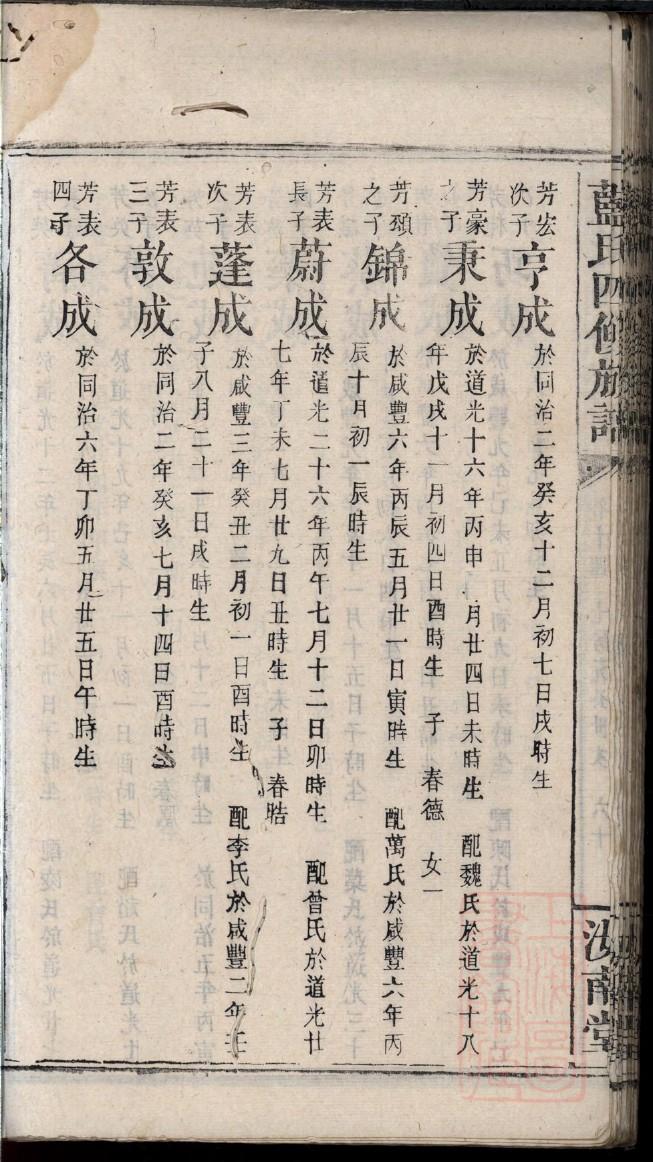 藍氏四修族譜
汝南堂
芳宏
次子
亨成
於同治二年癸亥十二月初七日戌時生
芳豪
之子
秉成
於道光十六年丙申 月廿四日未時生 配魏氏於道光十八
年戊戌十一月初四日酉時生 子 春德 女一
芳頴
之子
錦成
於咸豐六年丙辰五月廿一日寅時生 配萬氏於咸豐六年丙
辰十月初一辰時生
芳表
長子
蔚成
於道光二十六年丙午七月十二日卯時生 配曾氏於道光廿
七年丁未七月廿九日丑時生 子 春晧
芳表
次子
蓬成
於咸豐三年癸丑二月初一日酉時生 配李氏於咸豐二年壬
子八月二十一日戌時生
芳表
三子
敦成
於同治二年癸亥七月十四日酉時生
芳表
四子
各成
於同治六年丁卯五月廿五日午時生